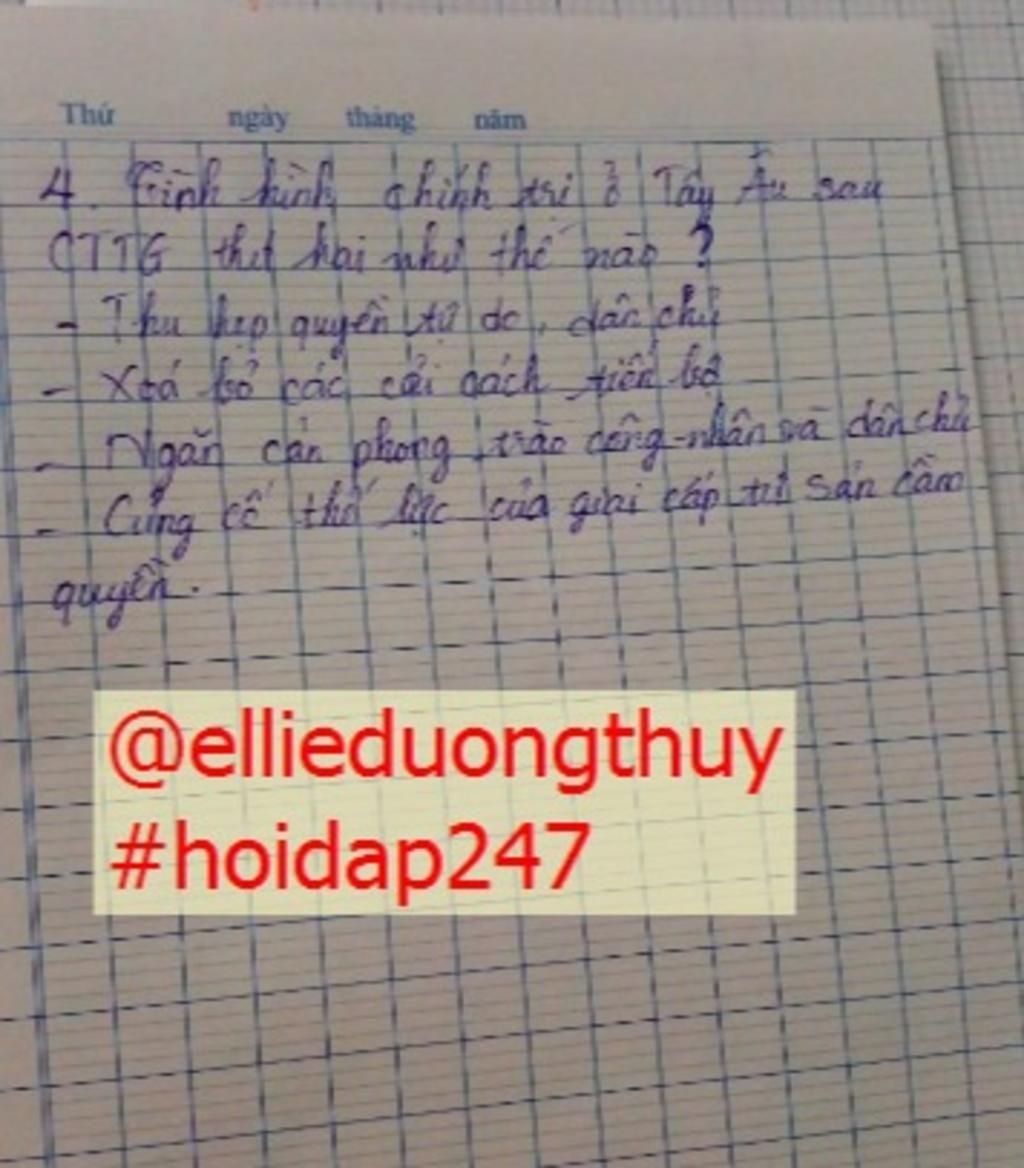 Thứ ngày tháng năm
4. Tình hình chính trị ở Tây Âu sau
CTTG thứ hai như thế nào ?
- Thu hẹp quyền tự do, dân chủ
- Xoá bỏ các cải cách tiến bộ
- Ngăn cản phong trào công nhân và dân chủ
- Củng cố thế lực của giai cấp tư sản cầm
quyền.
@ellieduongthuy
#hoidap247